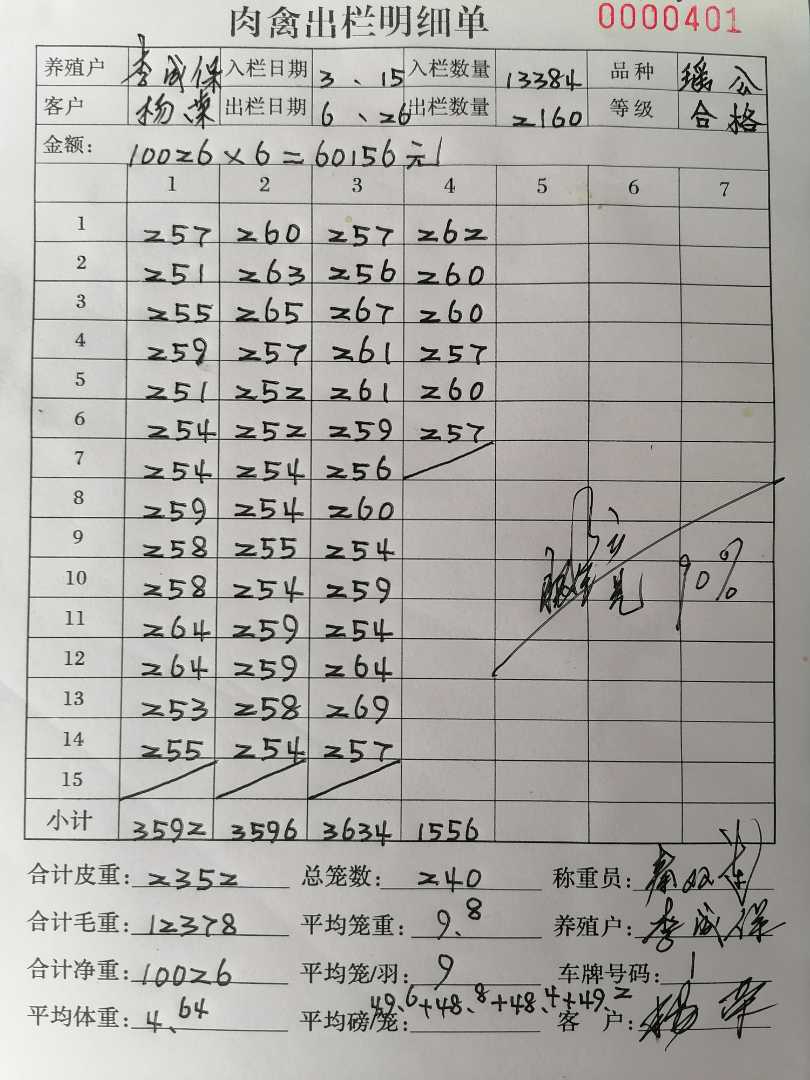 肉禽出栏明细单 0000401
养殖户 李成保 入栏日期 3、15 入栏数量 13384 品种 瑶公
客户 杨荣 出栏日期 6、26 出栏数量 2160 等级 合格
金额: 10026×6=60156元
1 2 3 4 5 6 7
1 257 260 257 262
2 251 263 256 260
3 255 265 267 260
4 259 257 261 257
5 251 252 261 260
6 254 252 259 257
7 254 254 256
8 259 254 260
9 258 255 254
10 258 254 259 90%
11 264 259 254
12 264 259 264
13 253 258 269
14 255 254 257
15
小计 3592 3596 3634 1556
合计皮重: 2352 总笼数: 240 称重员:
合计毛重: 12378 平均笼重: 9.8 养殖户: 李成保
合计净重: 10026 平均笼/羽: 9 车牌号码: 1
平均体重: 4.64 平均磅/笼: 49.6+48.8+48.4+49.2 客户: 杨荣